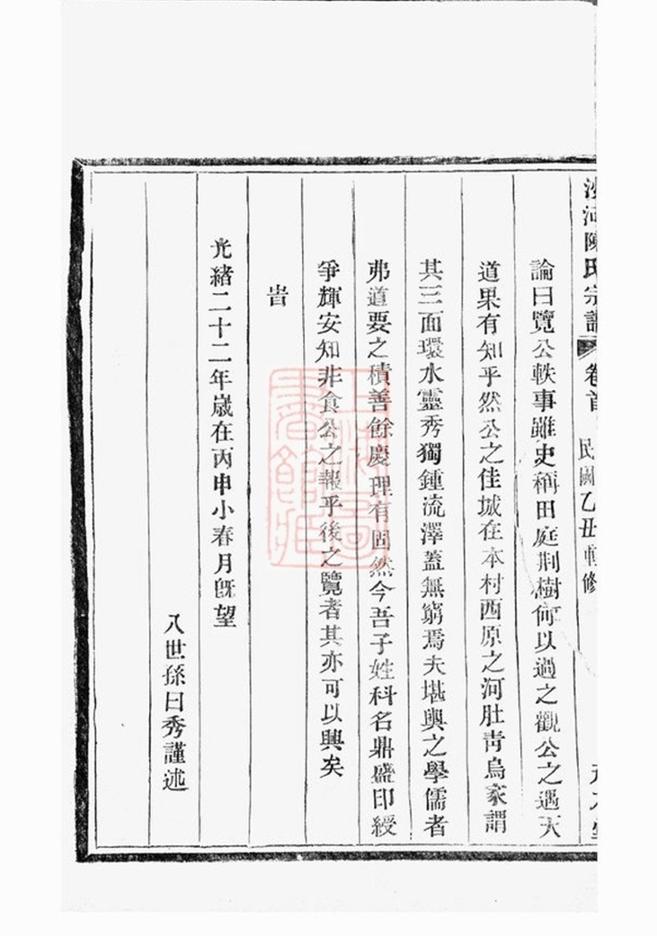 沙河陳氏宗譜 卷首 民國乙丑重修
論曰覽公軼事雖史稱田庭荆樹何以過之觀公之遇天
道果有知乎然公之佳城在本村西原之河肚靑烏家謂
其三面環水靈秀獨鍾流澤蓋無窮焉夫堪輿之學儒者
弗道要之積善餘慶理有固然今吾子姓科名鼎盛印綬
爭輝安知非食公之報乎後之覽者其亦可以興矣
旹
光緒二十二年歲在丙申小春月旣望
八世孫曰秀謹述
上海圖書館藏